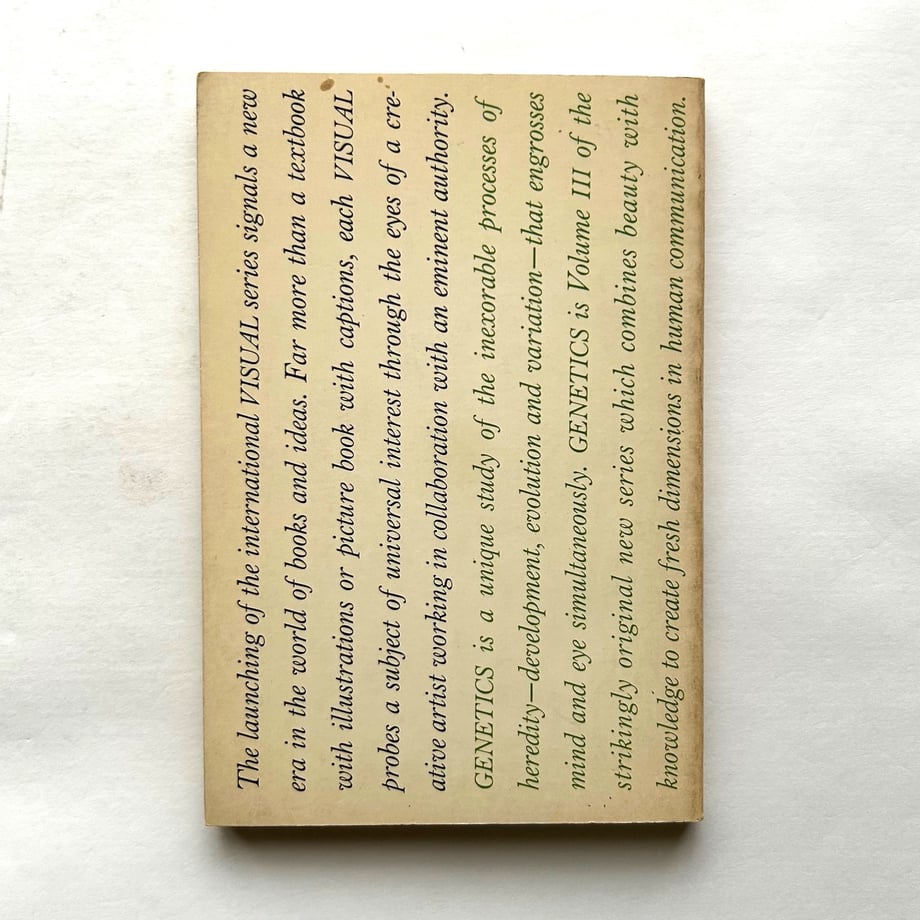 The launching of the international VISUAL series signals a new
era in the world of books and ideas. Far more than a textbook
with illustrations or picture book with captions, each VISUAL
probes a subject of universal interest through the eyes of a cre-
ative artist working in collaboration with an eminent authority.
GENETICS is a unique study of the inexorable processes of
heredity—development, evolution and variation—that engrosses
mind and eye simultaneously. GENETICS is Volume III of the
strikingly original new series which combines beauty with
knowledge to create fresh dimensions in human communication.